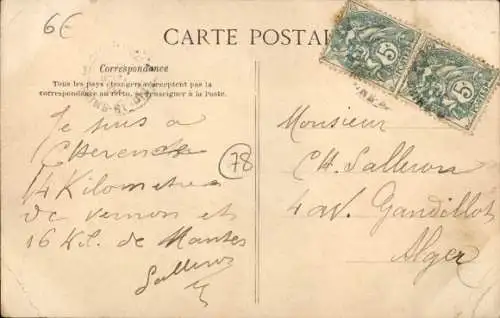 6€
CARTE POSTALE
Correspondance
Tous les pays étrangers n'acceptent pas la
correspondance au recto, se renseigner à la Poste.
5
5
Je suis a
14 Kilometres
de vernon et
16 Kil. de Mantes
Salleron
78
Monsieur
CH. Salleron
4 av. Gandillot
Alger